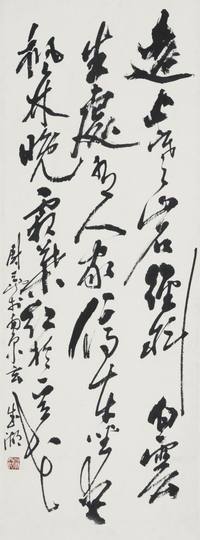 遠上寒山石徑斜白雲
生處有人家停車坐愛
楓林晚霜葉紅於二月花
於南京玄湖